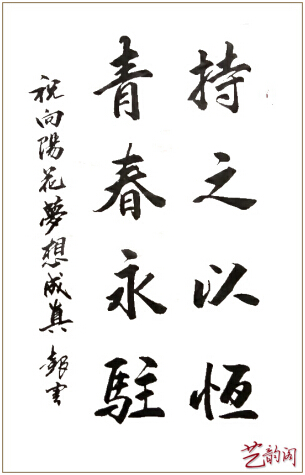 持之以恆
青春永駐
祝向陽花夢想成真
艺韵阁